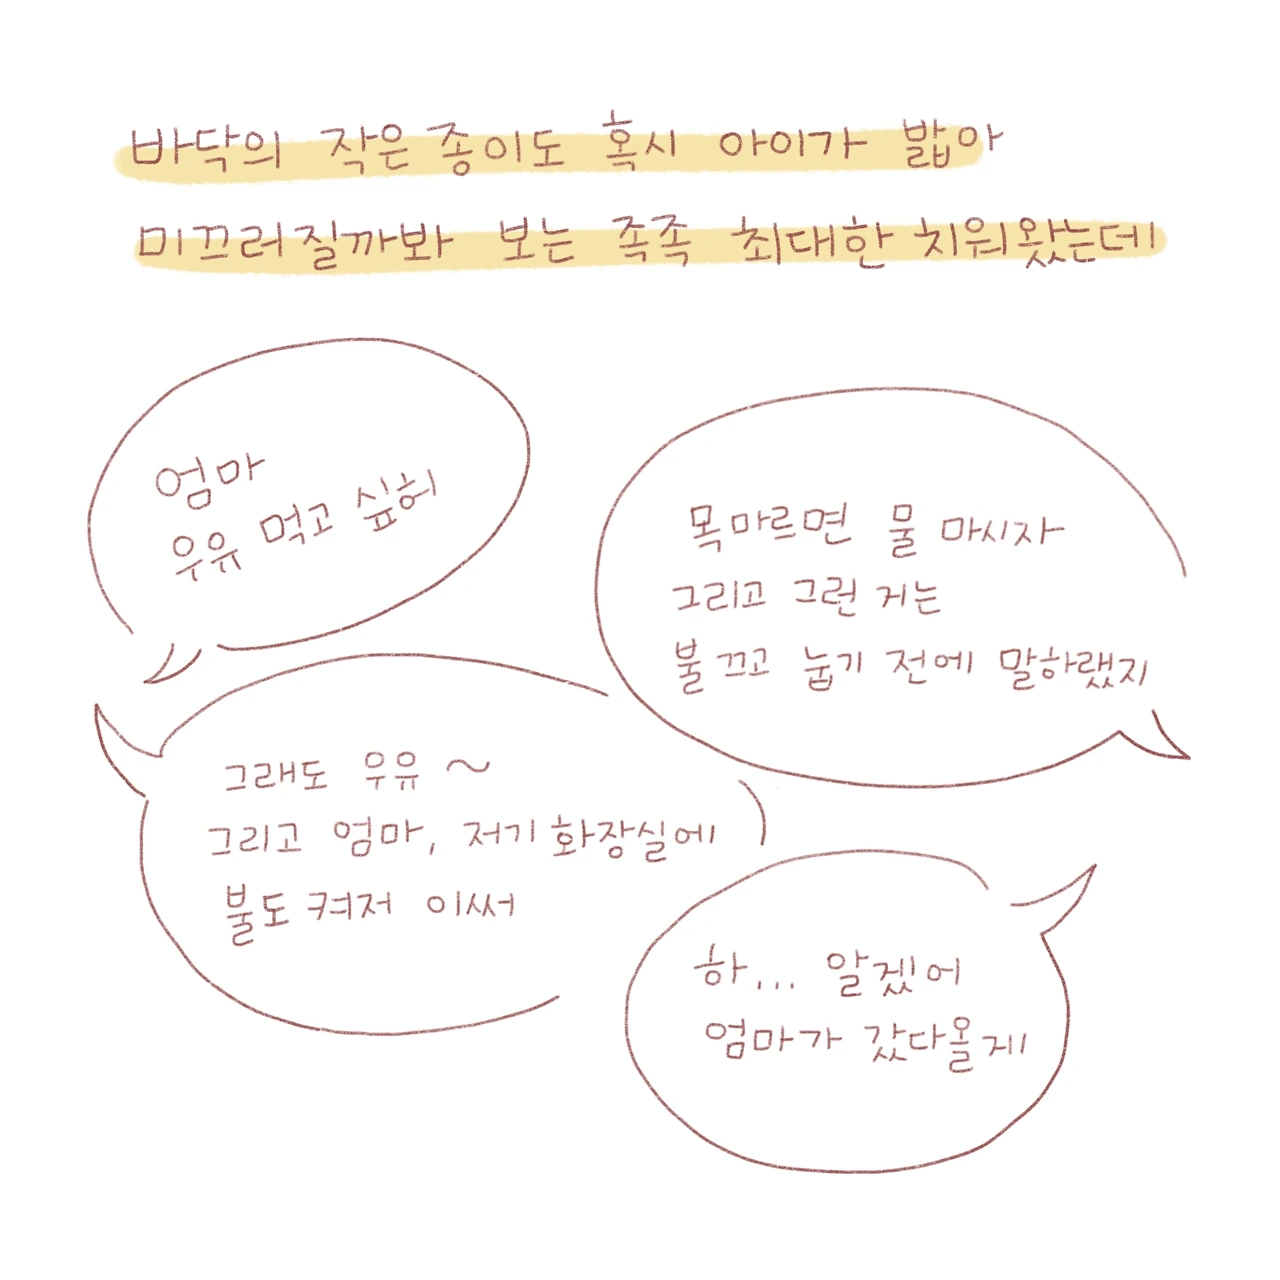 바닥의 작은 종이도 혹시 아이가 밟아
미끄러질까봐 보는 족족 최대한 치워왔는데
엄마
우유 먹고 싶허
목마르면 물 마시자
그리고 그런 거는
불 끄고 눕기 전에 말하랬지
그래도 우유~
그리고 엄마, 저기 화장실에
불도 켜져 이써
하... 알겠어
엄마가 갔다올게